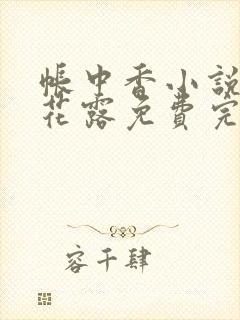 帳中香小說
花露免費完
容千肆